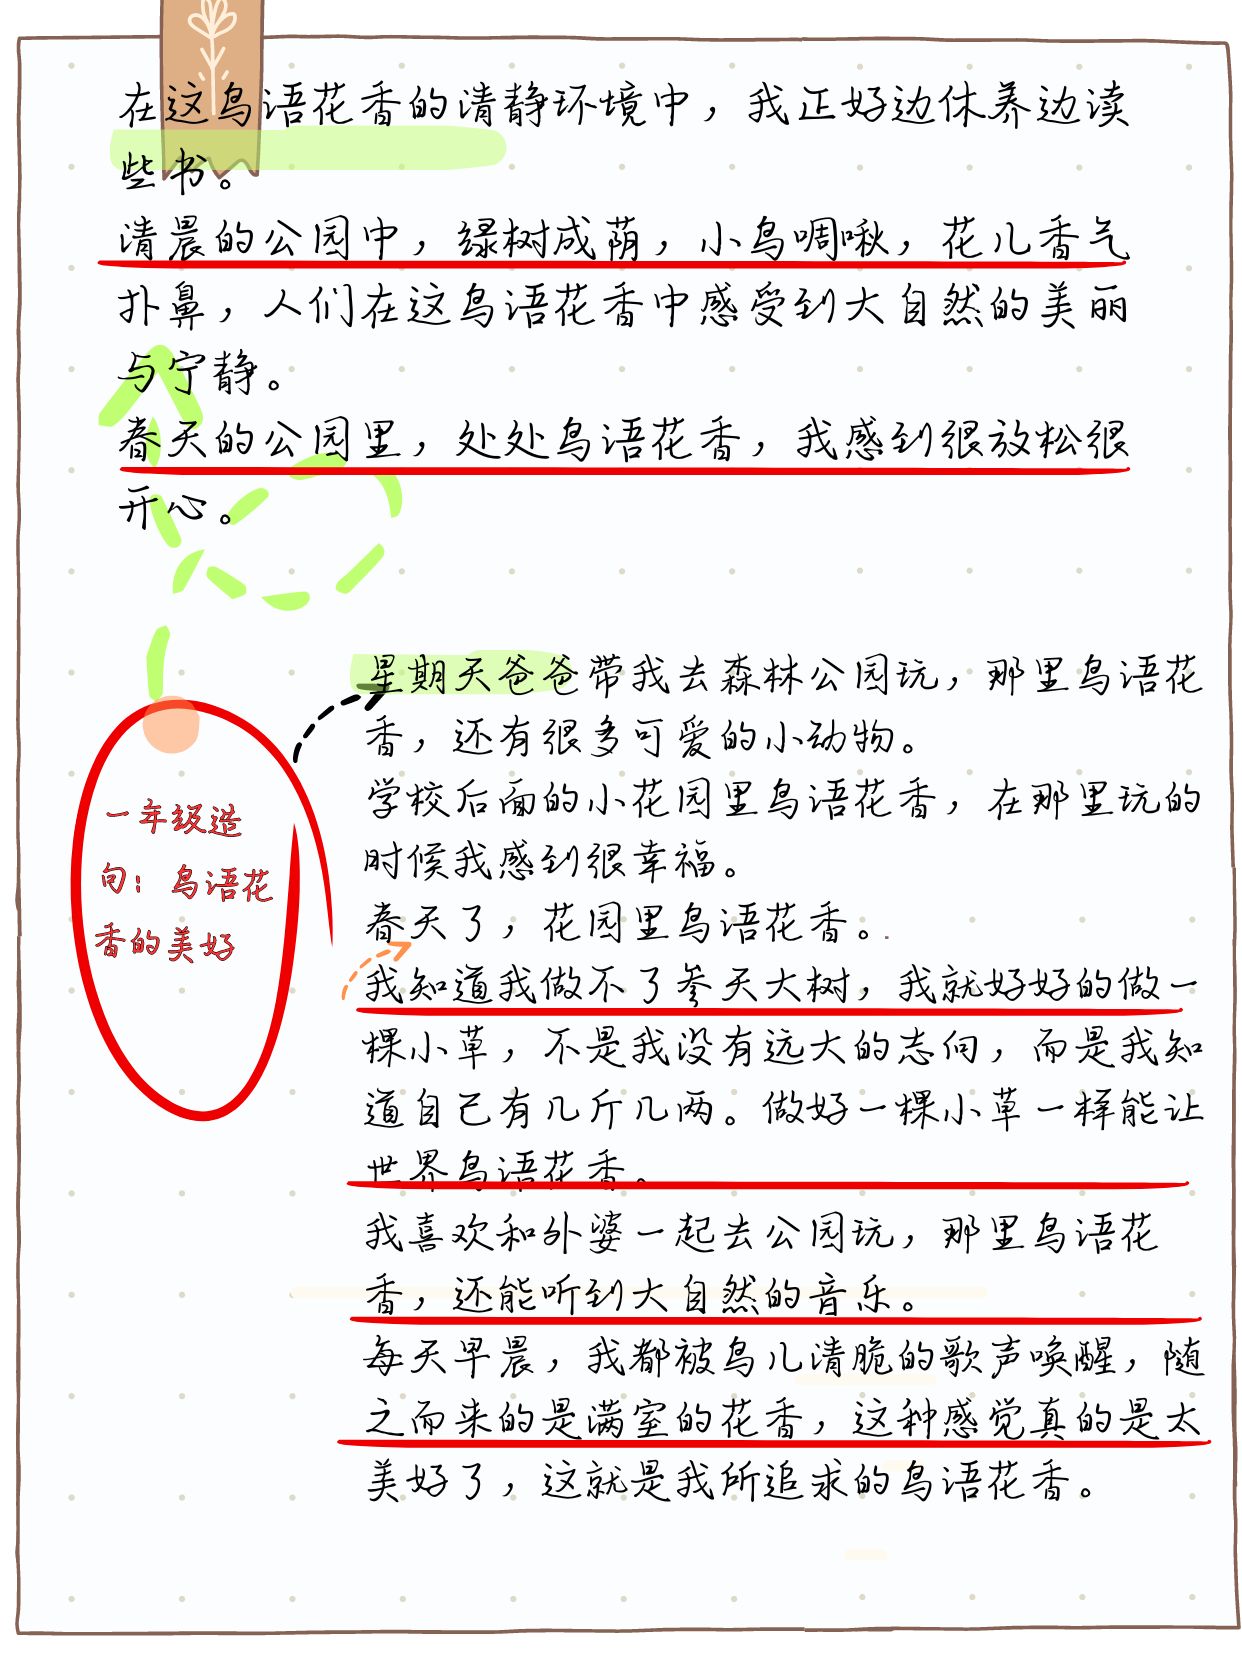 在这鸟语花香的清静环境中，我正好边休养边读
些书。
清晨的公园中，绿树成荫，小鸟啁啾，花儿香气
扑鼻，人们在这鸟语花香中感受到大自然的美丽
与宁静。
春天的公园里，处处鸟语花香，我感到很放松很
开心。
一年级造
句：鸟语花
香的美好
星期天爸爸带我去森林公园玩，那里鸟语花
香，还有很多可爱的小动物。
学校后面的小花园里鸟语花香，在那里玩的
时候我感到很幸福。
春天了，花园里鸟语花香。.
我知道我做不了参天大树，我就好好的做一
棵小草，不是我没有远大的志向，而是我知
道自己有几斤几两。做好一棵小草一样能让
世界鸟语花香。
我喜欢和外婆一起去公园玩，那里鸟语花
香，还能听到大自然的音乐。
每天早晨，我都被鸟儿清脆的歌声唤醒，随
之而来的是满室的花香，这种感觉真的是太
美好了，这就是我所追求的鸟语花香。